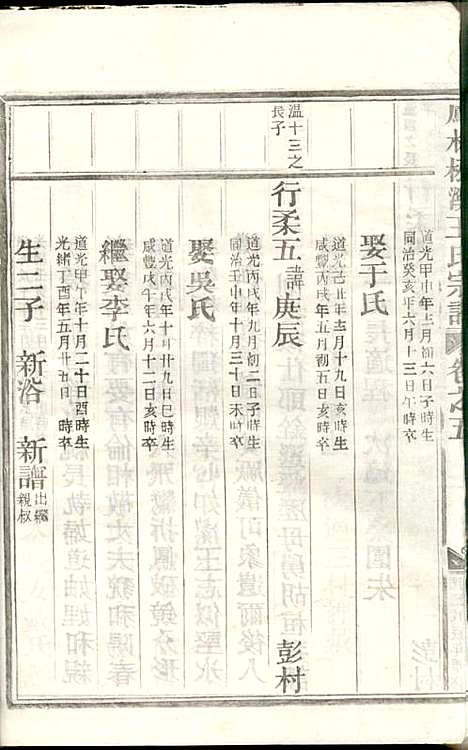 王氏宗譜 卷之五
道光甲申年十二月初六日子時生
同治癸亥年六月十三日午時卒
娶于氏
道光己丑年十二月十九日亥時生
咸豐丙戌年五月初五日亥時卒
溫十三之
長子
行柔五 諱庚辰 彭村
道光丙戌年九月初二日子時生
同治壬申年十月三十日未時卒
娶吳氏
道光丙戌年十月廿九日巳時生
咸豐戊午年六月十二日亥時卒
繼娶李氏
道光甲午年十月二十日酉時生
光緒丁酉年五月廿五日 時卒
生二子 新浴 新譜 出繼
親叔